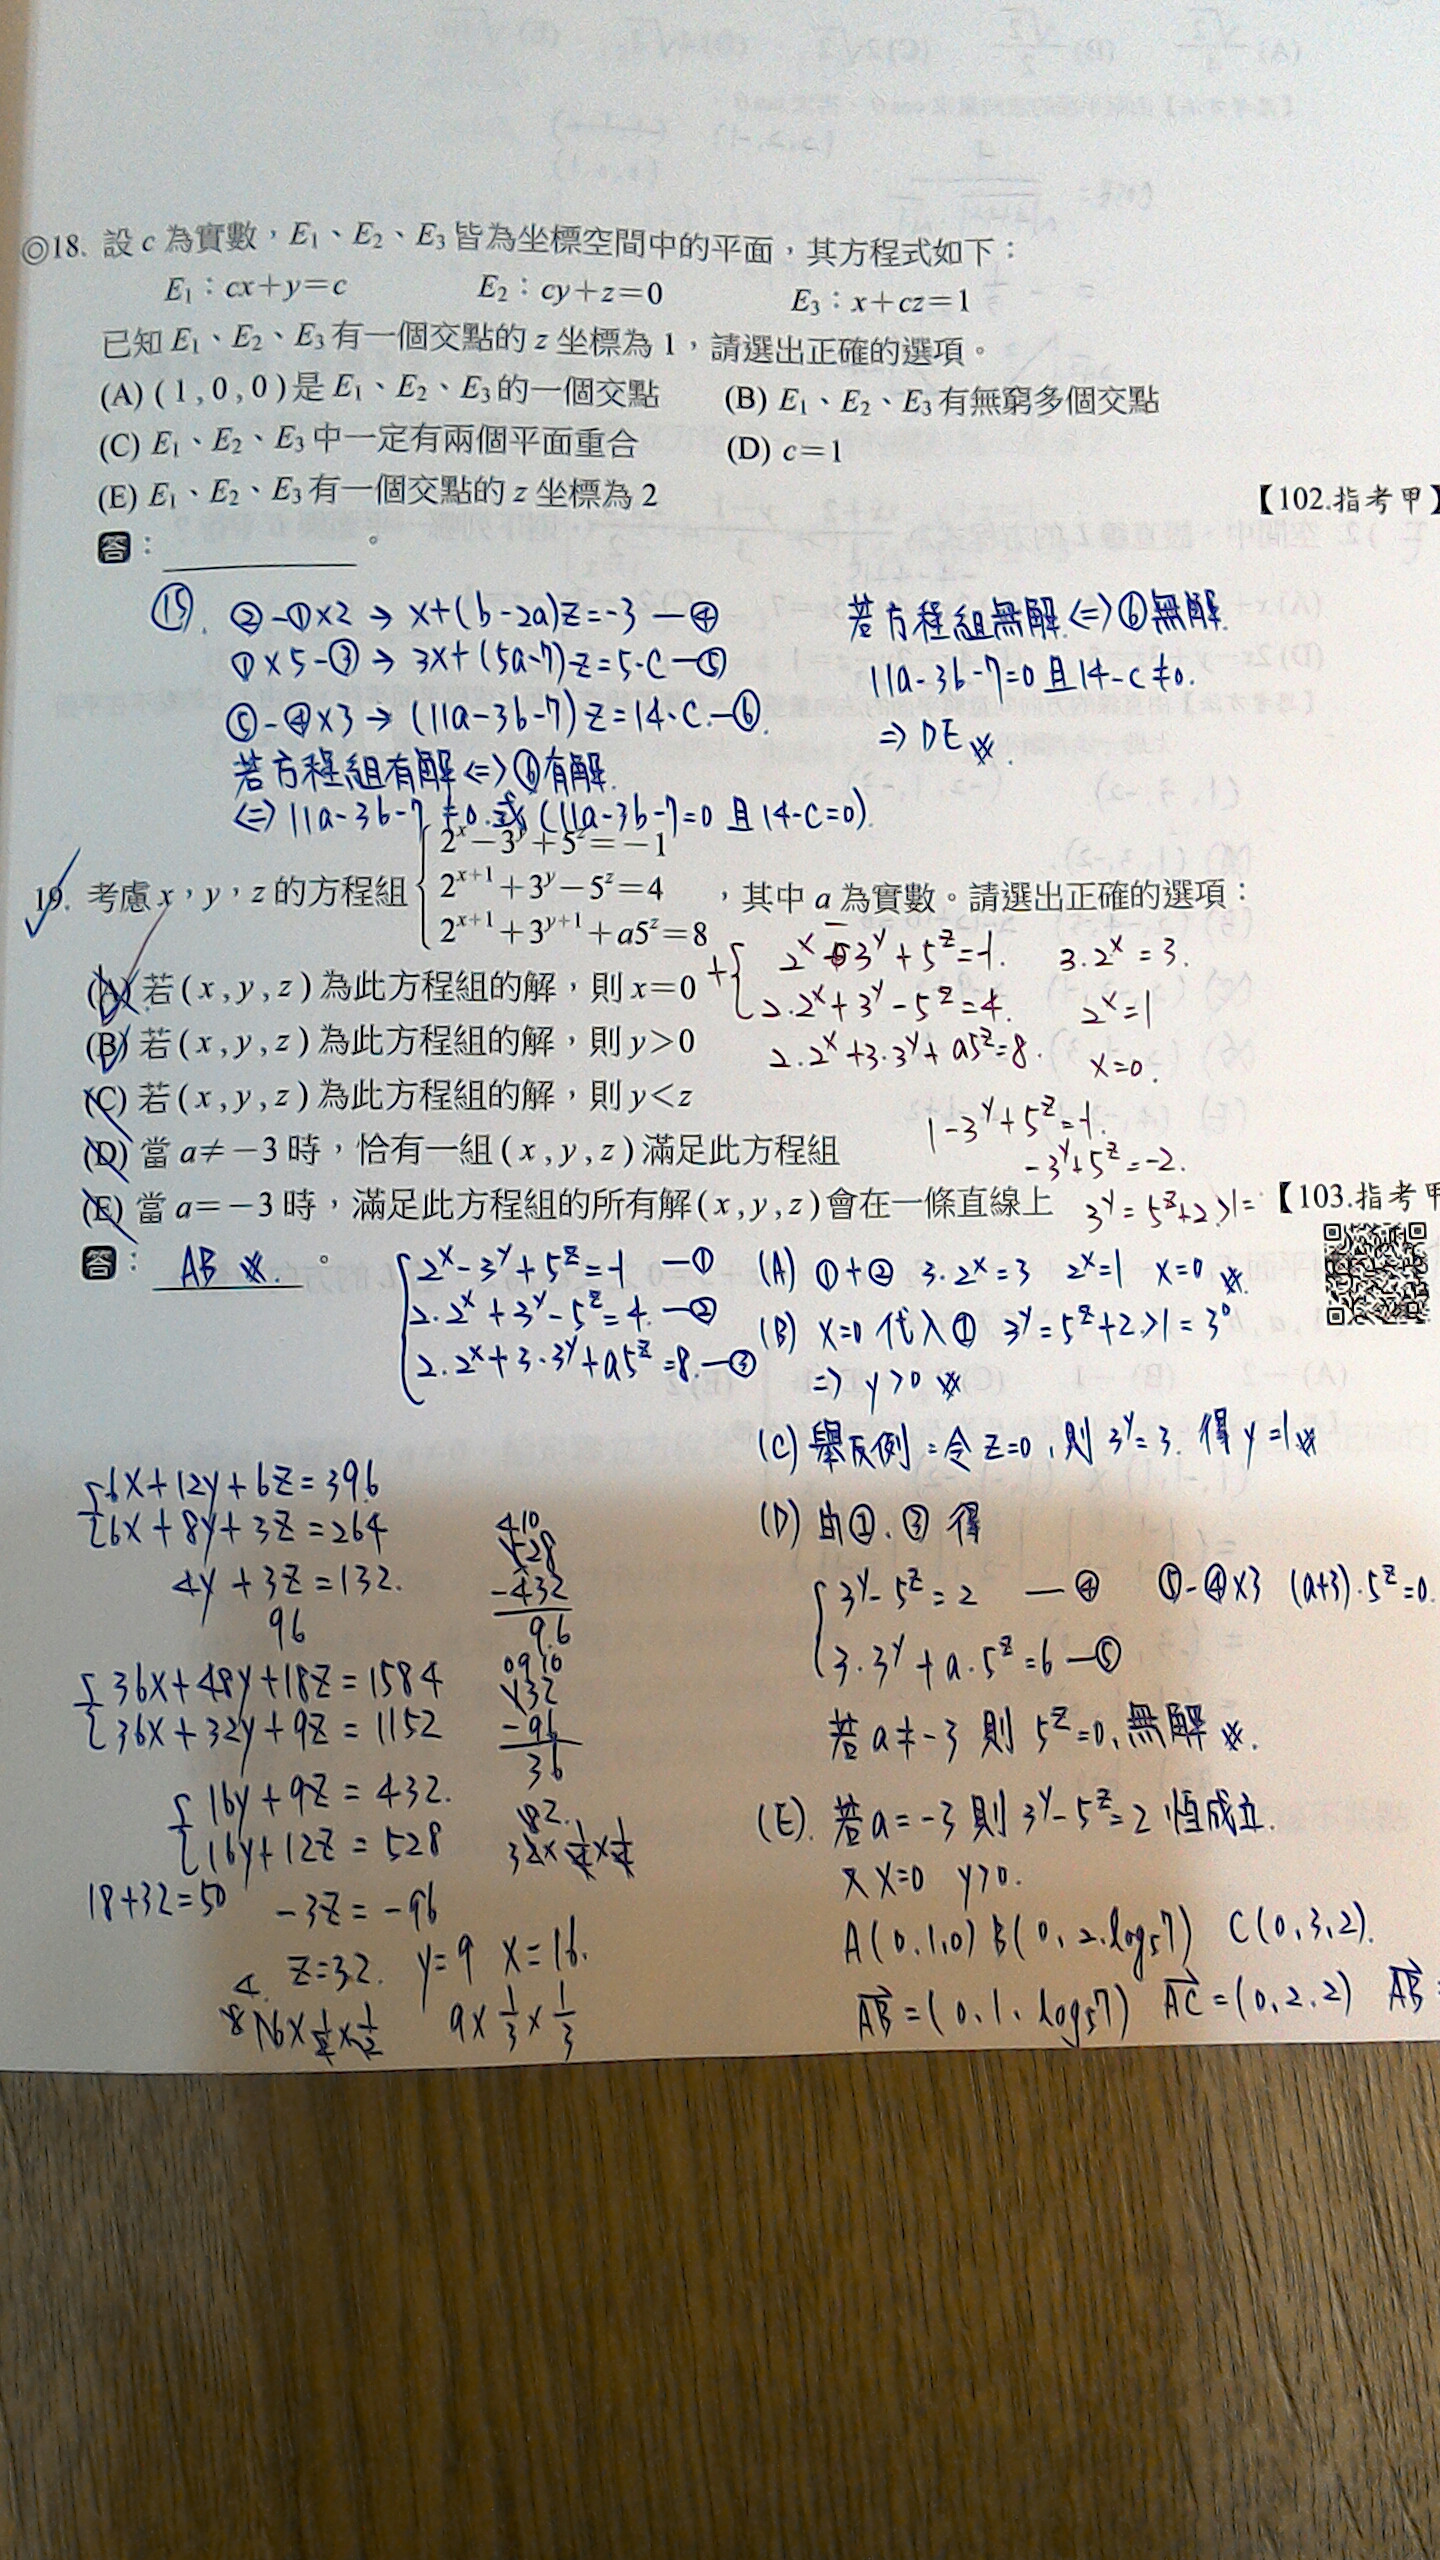 ◎18. 設 c 為實數，E₁、E₂、E₃ 皆為坐標空間中的平面，其方程式如下：
E₁：cx+y=c E₂：cy+z=0 E₃：x+cz=1
已知 E₁、E₂、E₃ 有一個交點的 z 坐標為 1，請選出正確的選項。
(A) (1,0,0) 是 E₁、E₂、E₃ 的一個交點 (B) E₁、E₂、E₃ 有無窮多個交點
(C) E₁、E₂、E₃ 中一定有兩個平面重合 (D) c=1
(E) E₁、E₂、E₃ 有一個交點的 z 坐標為 2 【102.指考甲】
答：。
⑮. ②-①×2 → x+(b-2a)z=-3 —④
①×5-③ → 3x+(5a-7)z=5-c —⑤
⑤-④×3 → (11a-3b-7)z=14-c —⑥.
若方程組有解 <=> ⑥有解.
<=> 11a-3b-7≠0.或 (11a-3b-7=0 且 14-c=0).
若方程組無解 <=> ⑥無解.
11a-3b-7=0 且 14-c≠0.
⇒ DE ※.
19. 考慮 x，y，z 的方程組 { 2^x-3^y+5^z=-1
2^{x+1}+3^y-5^z=4
2^{x+1}+3^{y+1}+a5^z=8 ，其中 a 為實數。請選出正確的選項：
(A) 若 (x,y,z) 為此方程組的解，則 x=0
(B) 若 (x,y,z) 為此方程組的解，則 y>0
(C) 若 (x,y,z) 為此方程組的解，則 y<z
(D) 當 a≠-3 時，恰有一組 (x,y,z) 滿足此方程組
(E) 當 a=-3 時，滿足此方程組的所有解 (x,y,z) 會在一條直線上 【103.指考甲
+{ 2^x-3^y+5^z=-1. 3·2^x=3.
2·2^x+3^y-5^z=4. 2^x=1
2·2^x+3·3^y+a5^z=8. x=0.
1-3^y+5^z=-1.
-3^y+5^z=-2.
3^y=5^z+2>1=
答：AB ※.。
{ 2^x-3^y+5^z=-1 —①
2·2^x+3^y-5^z=4. —②
2·2^x+3·3^y+a5^z=8. —③
(A) ①+② 3·2^x=3 2^x=1 x=0 ※.
(B) x=0 代入① 3^y=5^z+2>1=3^0
⇒ y>0 ※
(C) 舉反例：令 z=0，則 3^y=3. 得 y=1 ※
(D) 由②、③得
{ 3^y-5^z=2 —④ ⑤-④×3 (a+3)·5^z=0.
3·3^y+a·5^z=6 —⑤
若 a≠-3 則 5^z=0，無解 ※.
(E). 若 a=-3 則 3^y-5^z=2 恆成立.
又 x=0 y>0.
A(0,1,0) B(0,2,log₅7) C(0,3,2).
AB=(0,1,log₅7) AC=(0,2,2) AB
{ 6x+12y+6z=396
6x+8y+3z=264
4y+3z=132.
96
{ 36x+48y+18z=1584
36x+32y+9z=1152
{ 16y+9z=432.
16y+12z=528
18+32=50 -3z=-96
z=32. y=9 x=16.
16×½×½ 9×⅓×⅓
410
528
-432
96
0910
132
-96
36
32×¼×¼